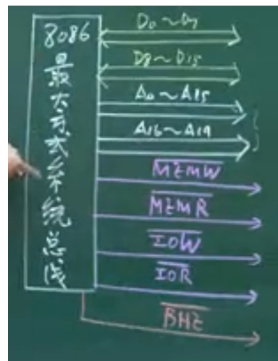 8086最大方式系统总线
D0~D7
D8~D15
A0~A15
A16~A19
M̅E̅M̅W̅
M̅E̅M̅R̅
I̅O̅W̅
I̅O̅R̅
B̅H̅E̅